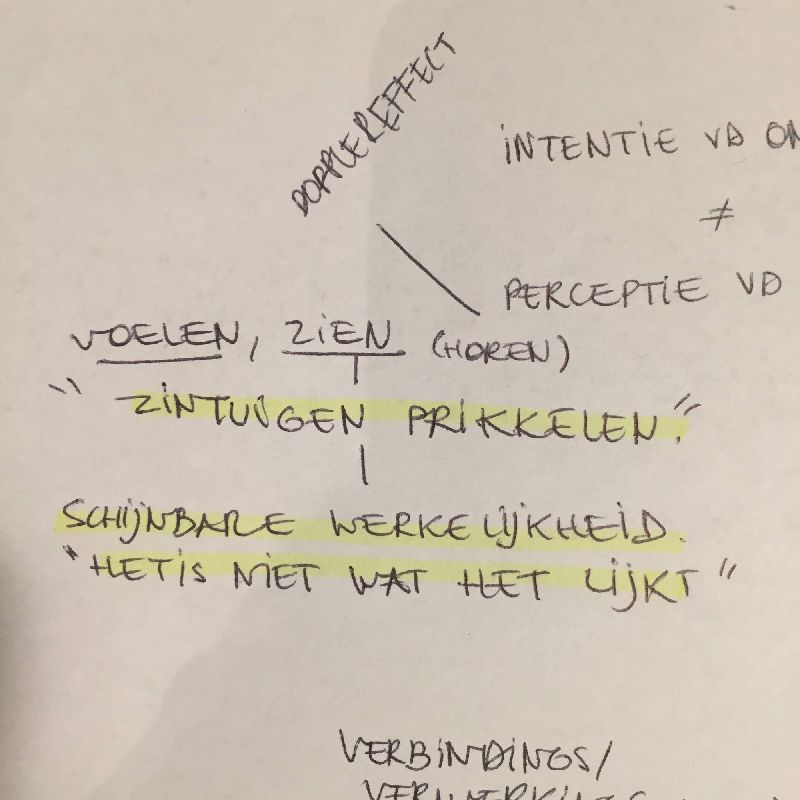 DOPPLEREFFECT
INTENTIE VD
≠
PERCEPTIE VD
VOELEN, ZIEN (HOREN)
"ZINTUIGEN PRIKKELEN."
SCHIJNBARE WERKELIJKHEID.
"HET IS NIET WAT HET LIJKT"
VERBINDINGS/